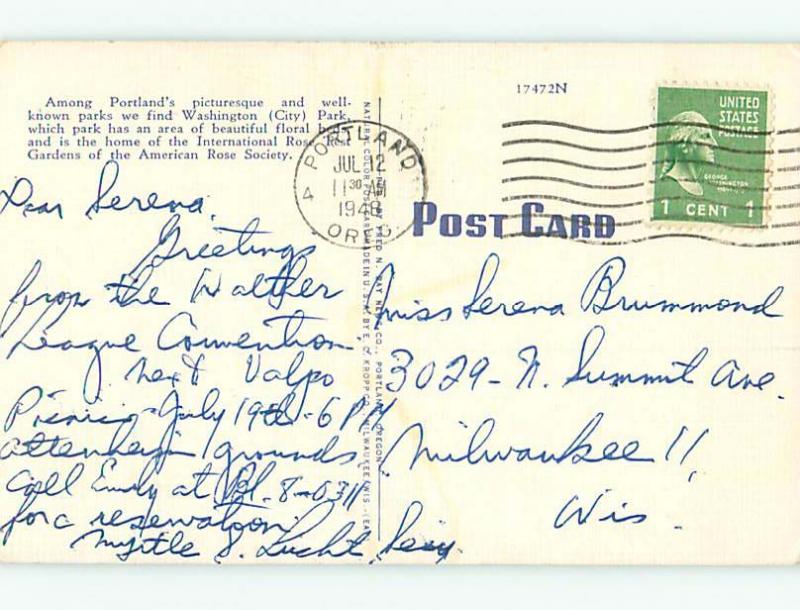 Among Portland's picturesque and well-
known parks we find Washington (City) Park,
which park has an area of beautiful floral
and is the home of the International Rose Test
Gardens of the American Rose Society.
Dear Serena,
Greetings
from the Walther
League Convention.
Next Valpo
Picnic - July 19th - 6 PM
attenheim grounds
Call Emily at Bl. 8-0311
for a reservation.
Myrtle S. Lucht, Secy.
17472N
PORTLAND
JUL 12
11 30 AM
1948
OREG
4
UNITED
STATES
POSTAGE
GEORGE
WASHINGTON
1 CENT 1
POST CARD
Miss Serena Brummond
3029 - N. Summit Ave.
Milwaukee 11,
Wis.